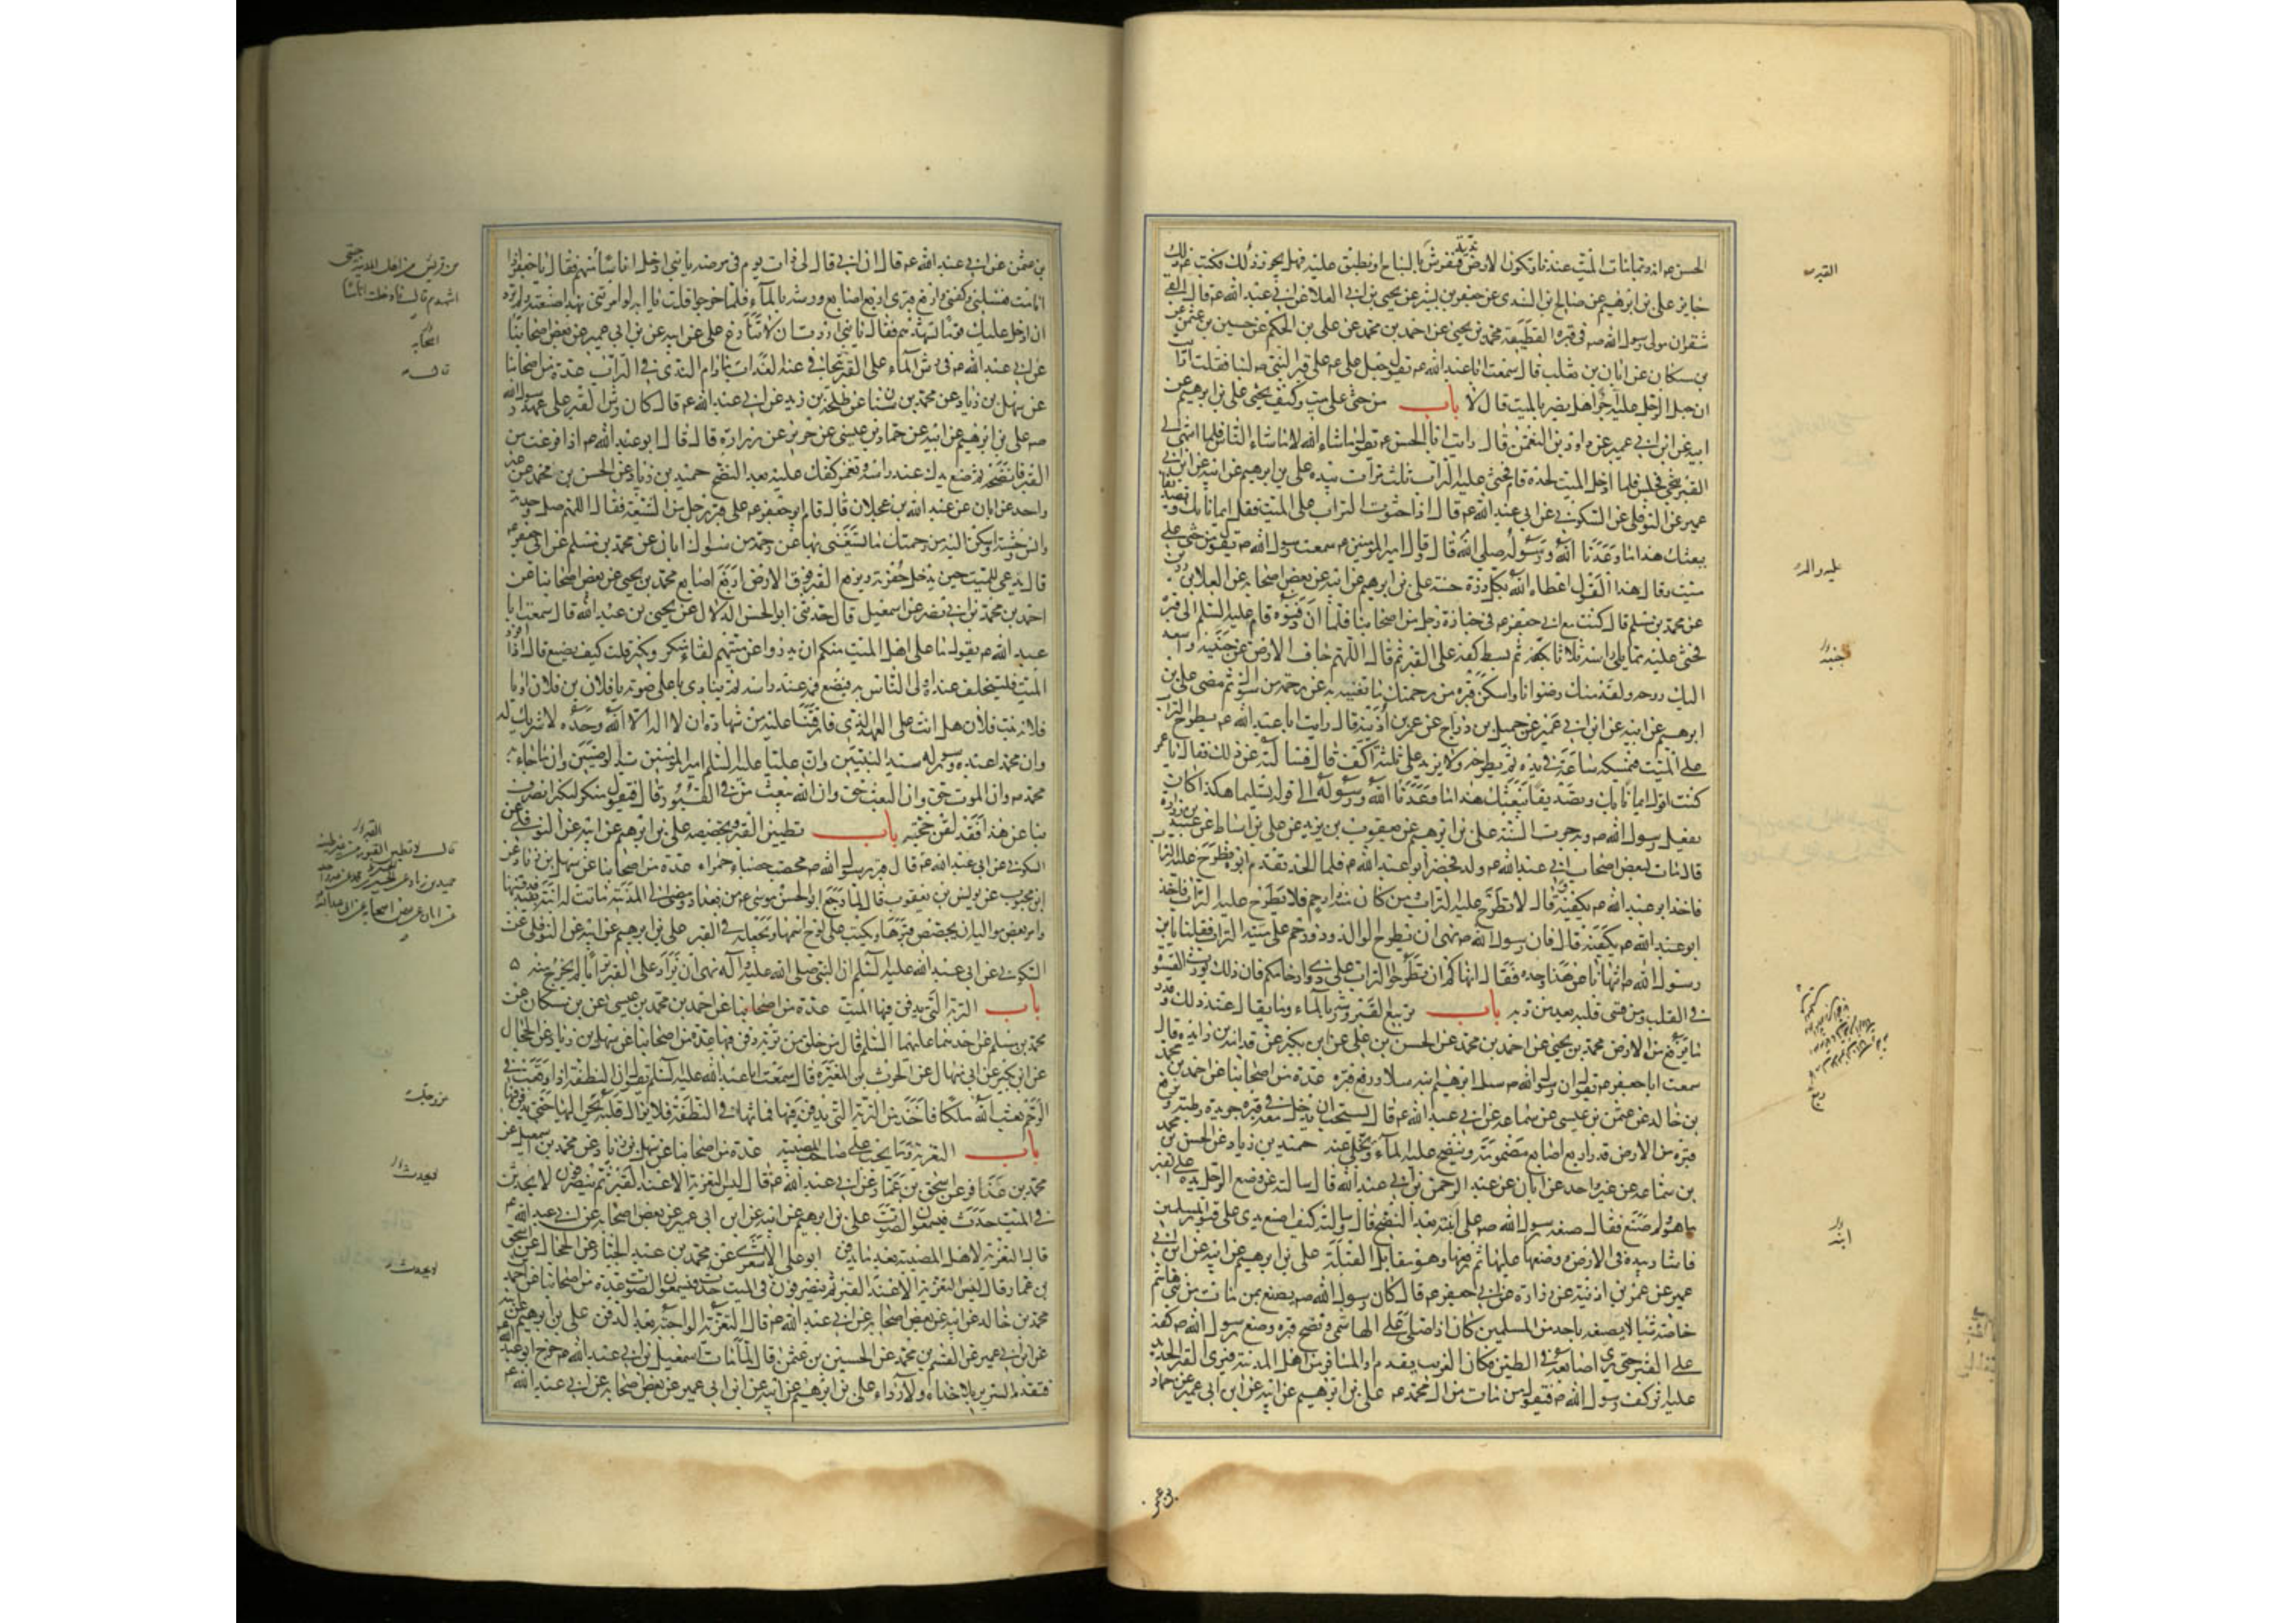 الحسن عم انه ربما مات الميت عندنا وتكون الارض ندية فنفرش بالساج او نطبق عليه فهل يجوز ذلك فكتب ذلك
جايز علي بن ابرهيم عن صالح بن السندي عن جعفر بن بشير عن يحيى بن ابي العلا عن ابي عبد الله عم قال القى
شقران مولى رسول الله صم في قبره القطيفة محمد بن يحيى عن احمد بن محمد عن علي بن الحكم عن حسين بن عثمن عن
بن مسكان عن ابان بن تغلب قال سمعت ابا عبد الله عم يقول جعل علي عم على قبر النبي صم لبنا فقلت ارايت
ان جعل الرجل عليه اجرا هل يضر بالميت قال لا باب من حثى على ميت وكيف يحثى علي بن ابرهيم عن
ابيه عن ابن ابي عمير عن داود بن النعمن قال رايت ابا الحسن عم يقول ما شاء الله لا ما شاء الناس فلما انتهى الى
القبر تنحى فجلس فلما ادخل الميت لحده قام فحثى عليه التراب ثلث مرات بيده علي بن ابرهيم عن ابيه عن ابن ابي
عمير عن النوفلي عن السكوني عن ابي عبد الله عم قال اذا حثوت التراب على الميت فقل ايمانا بك وتصديقا
ببعثك هذا ما وعدنا الله ورسوله صلى الله قال وقال امير المؤمنين عم سمعت رسول الله صم يقول من حثى على
ميت وقال هذا القول اعطاه الله بكل ذرة حسنة علي بن ابرهيم عن ابيه عن بعض اصحابه عن العلا بن رزين
عن محمد بن مسلم قال كنت مع ابي جعفر عم في جنازة رجل من اصحابنا فلما ان دفنوه قام عليه السلم الى قبره
فحثى عليه مما يلي راسه ثلاثا بكفه ثم بسط كفه على القبر ثم قال اللهم جاف الارض عن جنبيه واصعد
اليك روحه ولقه منك رضوانا واسكن قبره من رحمتك ما تغنيه به عن رحمة من سواك ثم مضى علي بن
ابرهيم عن ابيه عن ابن ابي عمير عن جميل بن دراج عن عمر بن اذينة قال رايت ابا عبد الله عم يطرح التراب
على الميت فيمسكه ساعة في يده ثم يطرحه ولا يزيد على ثلثة اكف قال فسالته عن ذلك فقال يا عمر
كنت اقول ايمانا بك وتصديقا ببعثك هذا ما وعدنا الله ورسوله الى قوله تسليما هكذا كان
يفعل رسول الله صم وبه جرت السنة علي بن ابرهيم عن يعقوب بن يزيد عن علي بن اسباط عن عبيد بن زرارة
قال مات لبعض اصحاب ابي عبد الله عم ولد فحضر ابو عبد الله عم فلما الحد تقدم ابوه فطرح عليه التراب
فاخذ ابو عبد الله عم بكفيه وقال لا تطرح عليه التراب ومن كان منه ذا رحم فلا يطرح عليه التراب فاخذ
ابو عبد الله عم بكفيه قال فان رسول الله صم نهى ان يطرح الوالد وذو رحم على ميته التراب فقلنا يا بن
رسول الله صم اتنهانا عن هذا وحده فقال انهاكم ان تطرحوا التراب على ذوي ارحامكم فان ذلك يورث القسوة
في القلب ومن قسى قلبه بعد من ربه باب تربيع القبر ورشه بالماء وما يقال عند ذلك وقدر
ما يرفع من الارض محمد بن يحيى عن احمد بن محمد عن الحسن بن علي عن ابن بكير عن قدامة بن زايدة قال
سمعت ابا جعفر عم يقول ان رسول الله صم سل ابرهيم ابنه سلا ورفع قبره عدة من اصحابنا عن احمد بن محمد
بن خالد عن عثمن بن عيسى عن سماعة عن ابي عبد الله عم قال يستحب ان يدخل معه في قبره جريدة رطبة ويرفع
قبره من الارض قدر اربع اصابع مضمومة وينضح عليه الماء ويخلى عنه حميد بن زياد عن الحسن بن محمد
بن سماعة عن غير واحد عن ابان عن عبد الرحمن بن ابي عبد الله قال سالته عن وضع الرجل يده على القبر
ما هو ولم صنع فقال صنعه رسول الله صم على ابنته بعد النضح قال وسالته كيف اضع يدي على قبور المسلمين
فاشار بيده الى الارض ووضعها عليها ثم رفعها وهو مقابل القبلة علي بن ابرهيم عن ابيه عن ابن ابي
عمير عن عمر بن اذينة عن زرارة عن ابي جعفر عم قال كان رسول الله صم يصنع بمن مات من بني هاشم
خاصة شيئا لا يصنعه باحد من المسلمين كان اذا صلى على الهاشمي ونضح قبره وضع رسول الله صم كفه
على القبر حتى يرى اصابعه في الطين فكان الغريب يقدم او المسافر من اهل المدينة فيرى القبر الجديد
عليه اثر كف رسول الله صم فيقول من مات من ال محمد عم علي بن ابرهيم عن ابيه عن ابن ابي عمير عن حماد
القبر
عليه واله
جنبيه
ابنه
بن عثمن
بن عثمن عن ابي عبد الله عم قال ان ابي قال لي ذات يوم في مرضه يا بني ادخل اناسا اشهدهم فقال يا جعفر اذا
انا مت فغسلني وكفني وارفع قبري اربع اصابع ورشه بالماء فلما خرجوا قلت يا ابه لو امرتني بهذا صنعته ولم ترد
ان ادخل عليك قوما تشهدهم فقال يا بني اردت ان لا تنازع علي عن ابيه عن بن ابي عمير عن بعض اصحابنا
عن ابي عبد الله عم في رش الماء على القبر قال يتجافى عنه العذاب ما دام الندى في التراب عدة من اصحابنا
عن سهل بن زياد عن محمد بن سنان عن طلحة بن زيد عن ابي عبد الله عم قال كان رش القبر على عهد رسول الله
صم علي بن ابرهيم عن ابيه عن حماد بن عيسى عن حريز عن زرارة قال قال ابو عبد الله عم اذا فرغت من
القبر فانضحه ثم ضع يدك عند راسه وتغمز كفك عليه بعد النضح حميد بن زياد عن الحسن بن محمد عن غير
واحد عن ابان عن عبد الله بن عجلان قال قام ابو جعفر عم على قبر رجل من الشيعة فقال اللهم صل وحدته
وانس وحشته واسكن اليه من رحمتك ما يستغنى بها عن رحمة من سواك ابان عن محمد بن مسلم عن ابي جعفر عم
قال يدعى للميت حين يدخل حفرته ويرفع القبر فوق الارض اربع اصابع محمد بن يحيى عن بعض اصحابنا عن
احمد بن محمد بن ابي نصر عن اسمعيل قال حدثني ابو الحسن الدلال عن يحيى بن عبد الله قال سمعت ابا
عبد الله عم يقول ما على اهل الميت منكم ان يدرؤا عن ميتهم لقاء منكر ونكير قلت كيف يصنع قال اذا افرد
الميت فليتخلف عنده اولى الناس به فيضع فمه عند راسه ثم ينادي باعلى صوته يا فلان بن فلان او يا
فلانة بنت فلان هل انت على العهد الذي فارقتنا عليه من شهادة ان لا اله الا الله وحده لا شريك له
وان محمدا عبده ورسوله سيد النبيين وان عليا عليه السلم امير المؤمنين سيد الوصيين وان ما جاء به
محمد صم وان الموت حق وان البعث حق وان الله يبعث من في القبور قال فيقول منكر لنكير انصرف
بنا عن هذا فقد لقن حجته باب تطيين القبر وتجصيصه علي بن ابرهيم عن ابيه عن النوفلي عن
السكوني عن ابي عبد الله عم قال قبر رسول الله صم محصب حصباء حمراء عدة من اصحابنا عن سهل بن زياد عن
ابن محبوب عن يونس بن يعقوب قال لما رجع ابو الحسن موسى عم من بغداد ومضى الى المدينة ماتت له ابنة بفيد فدفنها
وامر بعض مواليه ان يجصص قبرها ويكتب على لوح اسمها ويجعله في القبر علي بن ابرهيم عن ابيه عن النوفلي عن
السكوني عن ابي عبد الله عليه السلم ان النبي صلى الله عليه وآله نهى ان يزاد على القبر تراب لم يخرج منه
باب التربة التي يدفن فيها الميت عدة من اصحابنا عن احمد بن محمد بن عيسى عن بن مسكان عن
محمد بن مسلم عن احدهما عليهما السلم قال من خلق من تربة دفن فيها عدة من اصحابنا عن سهل بن زياد عن الحجال
عن ابن بكير عن ابي منهال عن الحرث بن المغيرة قال سمعت ابا عبد الله عليه السلم يقول ان النطفة اذا وقعت في
الرحم بعث الله ملكا فاخذ من التربة التي يدفن فيها فماثها في النطفة فلا يزال قلبه يحن اليها حتى يدفن فيها
باب التعزية وما يجب على صاحب المصيبة عدة من اصحابنا عن سهل بن زياد عن محمد بن اسمعيل عن
محمد بن عذافر عن اسحق بن عمار عن ابي عبد الله عم قال ليس التعزية الا عند القبر ثم ينصرفون لا يحدث
في الميت حدث فيسمعون الصوت علي بن ابرهيم عن ابيه عن ابن ابي عمير عن بعض اصحابه عن ابي عبد الله عم
قال التعزية لاهل المصيبة بعد ما يدفن ابو علي الاشعري عن محمد بن عبد الجبار عن الحجال عن اسحق
بن عمار قال ليس التعزية الا عند القبر ثم ينصرفون في الميت حدث فيسمعون الصوت عدة من اصحابنا عن احمد
محمد بن خالد عن ابيه عن بعض اصحابه عن ابي عبد الله عم قال التعزية الواجبة بعد الدفن علي بن ابرهيم عن ابيه
عن ابن ابي عمير عن القسم بن محمد عن الحسين بن عثمن قال لما مات اسمعيل بن ابي عبد الله عم خرج ابو عبد الله
فتقدم السرير بلا حذاء ولا رداء علي بن ابرهيم عن ابيه عن ابن ابي عمير عن بعض اصحابه عن ابي عبد الله عم
من قريش من اهل المدينة حتى
اشهدهم قال فادخلت اناسا
اصحابه
قال
القبر
قال لا تطينوا القبر من غير طينه
حميد بن زياد عن الحسن بن محمد عن غير واحد
عن ابان عن بعض اصحابه عن ابي عبد الله
عز وجل
فيحدث
لا يحدث